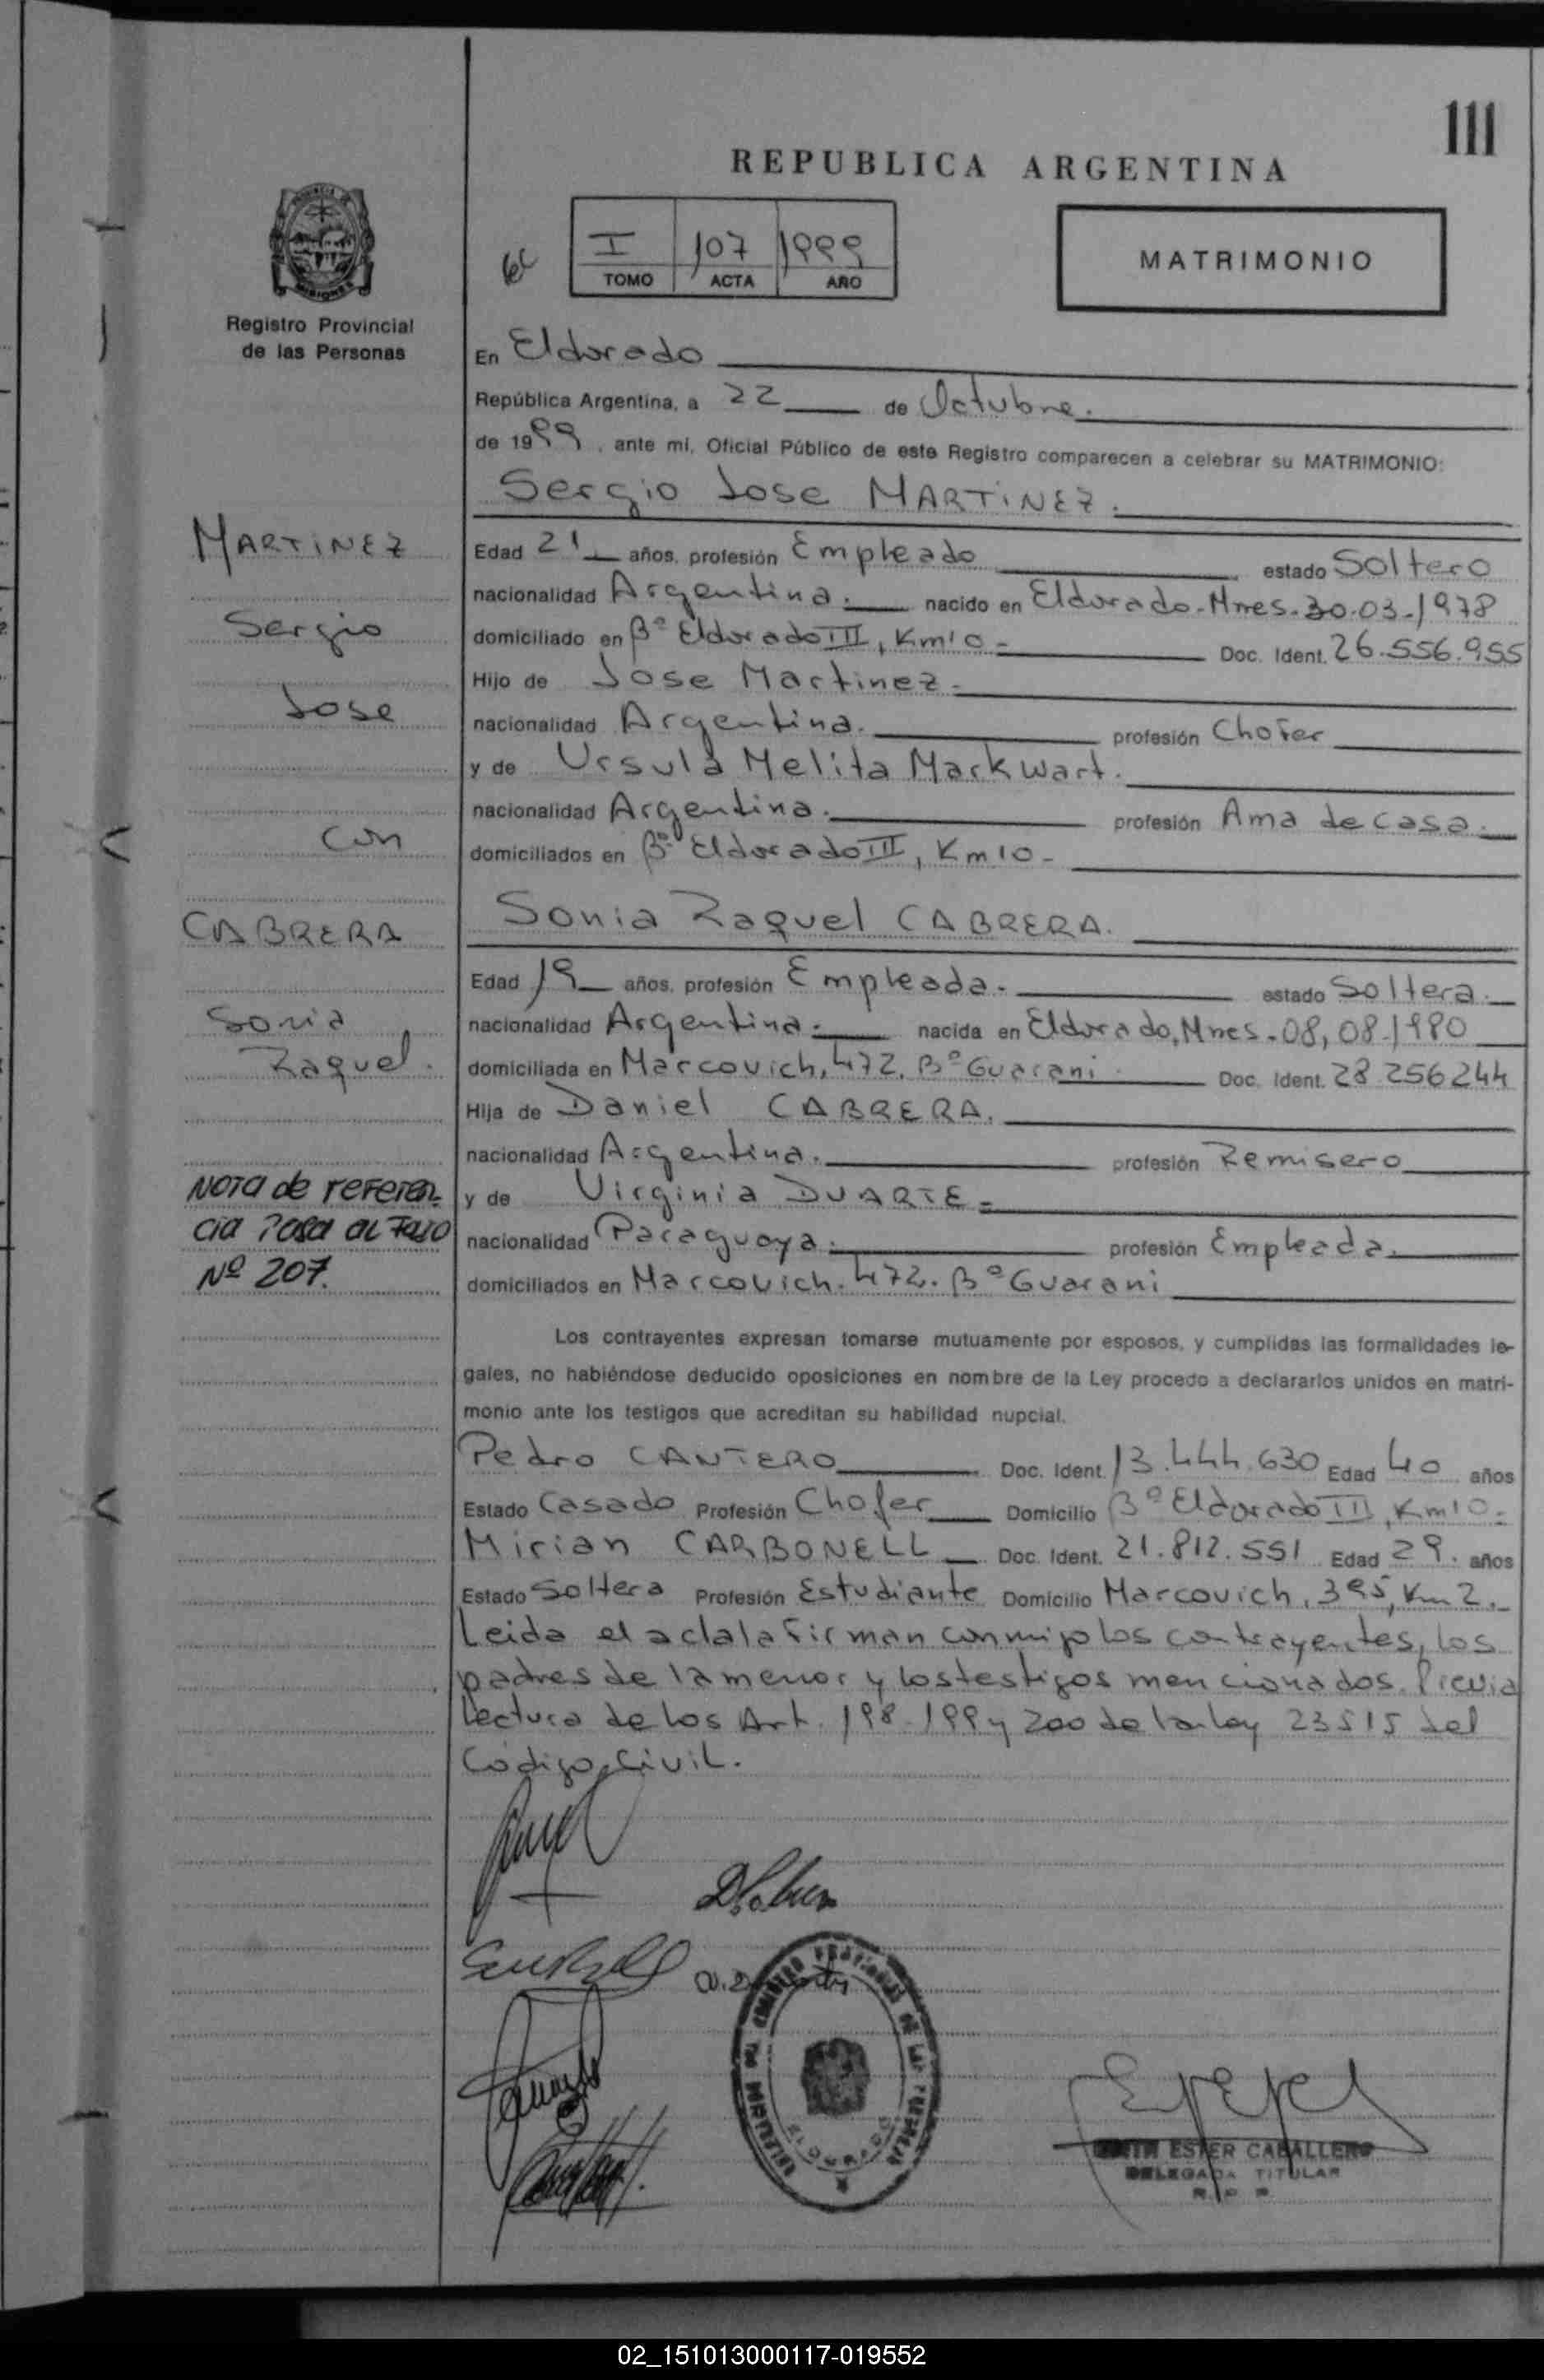 111
REPUBLICA ARGENTINA
I 107 1999
TOMO ACTA AÑO
MATRIMONIO
PROVINCIA DE
MISIONES
Registro Provincial
de las Personas
En Eldorado
República Argentina, a 22 de Octubre.
de 1999, ante mí, Oficial Público de este Registro comparecen a celebrar su MATRIMONIO:
Sergio Jose MARTINEZ.
MARTINEZ
Sergio
Jose
con
CABRERA
Sonia
Raquel.
Nota de referen
cia Pasa al Folio
Nº 207.
Edad 21 años, profesión Empleado estado Soltero
nacionalidad Argentina. nacido en Eldorado-Mnes-30-03-1978
domiciliado en Bº Eldorado III, Km10- Doc. Ident. 26.556.955
Hijo de Jose Martinez-
nacionalidad Argentina. profesión Chofer
y de Ursula Melita Markwart.
nacionalidad Argentina. profesión Ama de casa.
domiciliados en Bº Eldorado III, Km10-
Sonia Raquel CABRERA.
Edad 19 años, profesión Empleada. estado Soltera.
nacionalidad Argentina. nacida en Eldorado, Mnes-08, 08-1980
domiciliada en Marcovich, 472, Bº Guarani Doc. Ident. 28 256244
Hija de Daniel CABRERA.
nacionalidad Argentina. profesión Remisero
y de Virginia DUARTE-
nacionalidad Paraguaya. profesión Empleada.
domiciliados en Marcovich. 472. Bº Guarani
Los contrayentes expresan tomarse mutuamente por esposos, y cumplidas las formalidades le-
gales, no habiéndose deducido oposiciones en nombre de la Ley procedo a declararlos unidos en matri-
monio ante los testigos que acreditan su habilidad nupcial.
Pedro CANTERO Doc. Ident. 13.444.630 Edad 40 años
Estado Casado Profesión Chofer Domicilio Bº Eldorado III, Km10-
Mirian CARBONELL Doc. Ident. 21.812.551 Edad 29. años
Estado Soltera Profesión Estudiante Domicilio Marcovich, 395, Km 2.
Leida el acta la firman conmigo los contrayentes, los
padres de la menor y los testigos mencionados. Previa
Lectura de los Art. 198-199 y 200 de la ley 23515 del
Código Civil.
ELDORADO
ESTER CABALLERO
DELEGADA TITULAR
R. P. P.
02_151013000117-019552